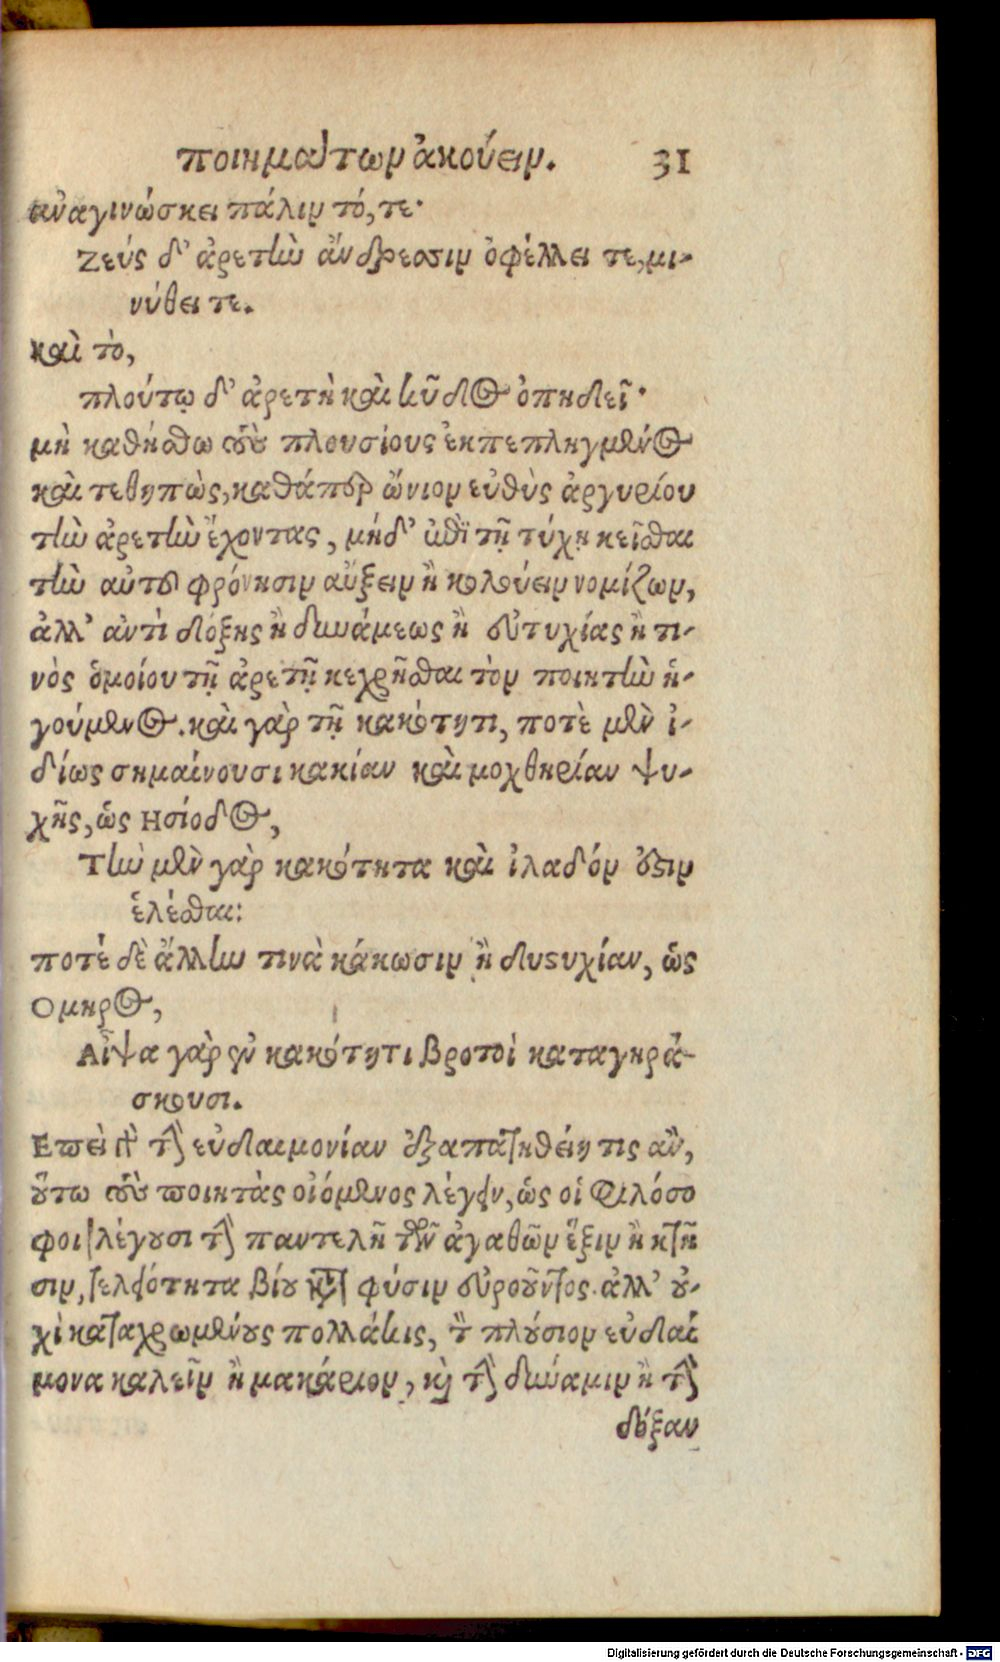 ποιημάτων ἀκούειν. 31
ἀναγινώσκει πάλιν τό, τε·
Ζεύς δ' ἀρετὴν ἄνδρεσσιν ὀφέλλει τε, μι-
νύθει τε.
καὶ τὸ,
πλούτῳ δ' ἀρετὴ καὶ κῦδος ὀπηδεῖ·
μὴ καθήσθω τοὺς πλουσίους ἐκπεπληγμένος
καὶ τεθηπὼς, καθάπερ ὤνιον εὐθὺς ἀργυρίου
τὴν ἀρετὴν ἔχοντας, μήδ' ἐπὶ τῇ τύχῃ κεῖσθαι
τὴν αὑτοῦ φρόνησιν αὔξειν ἢ κολούειν νομίζων,
ἀλλ' ἀντὶ δόξης ἢ δυνάμεως ἢ εὐτυχίας ἢ τι-
νὸς ὁμοίου τῇ ἀρετῇ κεχρῆσθαι τὸν ποιητὴν ἡ-
γούμενος. καὶ γὰρ τῇ κακότητι, ποτὲ μὲν ἰ-
δίως σημαίνουσι κακίαν καὶ μοχθηρίαν ψυ-
χῆς, ὡς Ησίοδος,
Τὴν μὲν γὰρ κακότητα καὶ ἰλαδόν ἔστιν
ἑλέσθαι:
ποτέ δὲ ἄλλην τινὰ κάκωσιν ἢ δυστυχίαν, ὡς
Ομηρος,
Αἶψα γὰρ ἐν κακότητι βροτοὶ καταγηρά-
σκουσι.
Επεὶ καὶ τὴν εὐδαιμονίαν ἐξαπατηθείη τις ἂν,
οὕτω τοὺς ποιητὰς οἰόμενος λέγειν, ὡς οἱ φιλόσο
φοι λέγουσι τὴν παντελῆ τῶν ἀγαθῶν ἕξιν ἢ κτῆ
σιν, τελειότητα βίου κατὰ φύσιν εὐροοῦντος. ἀλλ' οὐ-
χὶ καταχρωμένους πολλάκις, τὸν πλούσιον εὐδαί
μονα καλεῖν ἢ μακάριον, καὶ τὴν δύναμιν ἢ τὴν
δόξαν
Digitalisierung gefördert durch die Deutsche Forschungsgemeinschaft - DFG